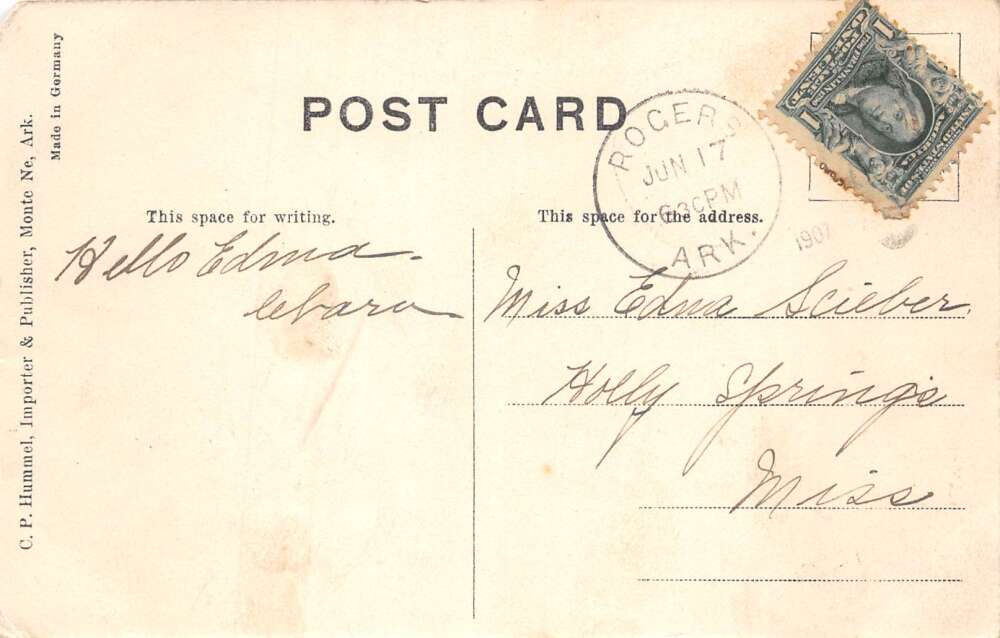 POST CARD
C. P. Hummel, Importer & Publisher, Monte Ne, Ark.
Made in Germany
ROGERS
JUN 17
630PM
ARK.
1907
1
1
This space for writing.
This space for the address.
Hello Edna.
Miss Edna Scieber
Holly Springs
Miss